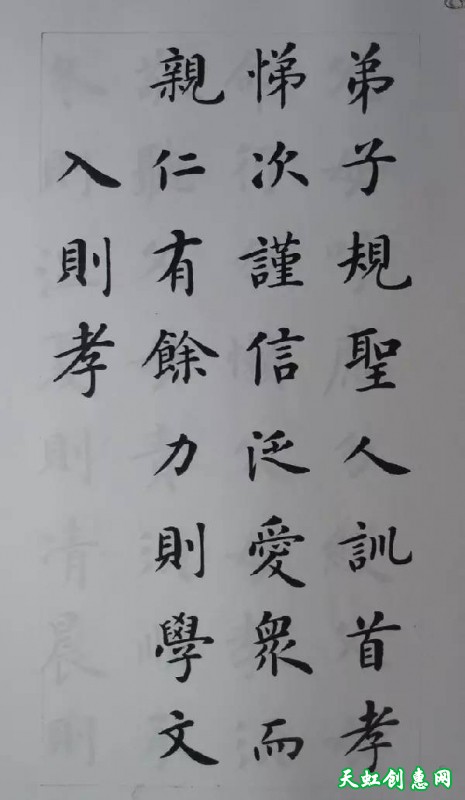 弟子規聖人訓首孝
悌次謹信泛愛衆而
親仁有餘力則學文
入則孝
天虹创惠网